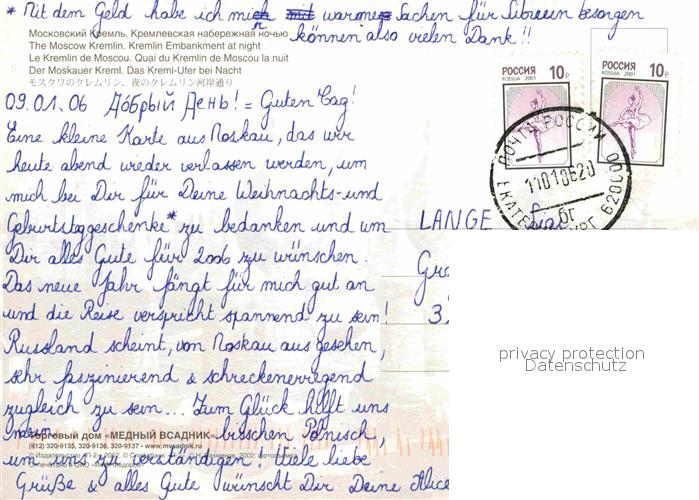 * Mit dem Geld habe ich mir warme Sachen für Sibirien besorgen
können also vielen Dank!!
Московский Кремль. Кремлевская набережная ночью
The Moscow Kremlin. Kremlin Embankment at night
Le Kremlin de Moscou. Quai du Kremlin de Moscou la nuit
Der Moskauer Kreml. Das Kreml-Ufer bei Nacht
モスクワのクレムリン。夜のクレムリン河岸通り
РОССИЯ 10р
ROSSIJA 2001
РОССИЯ 10р
ROSSIJA 2001
ПОЧТА РОССИИ
ЕКАТЕРИНБУРГ
09.01.06 Добрый День! = Guten Tag!
Eine kleine Karte aus Moskau, das wir
heute abend wieder verlassen werden, um
mich bei Dir für Deine Weihnachts- und
Geburtstaggeschenke* zu bedanken und um
Dir alles Gute für 2006 zu wünschen.
Das neue Jahr fängt für mich gut an
und die Reise verspricht spannend zu sein!
Russland scheint, von Moskau aus gesehen,
sehr faszinierend & schreckenerregend
zugleich zu sein... Zum Glück hilft uns
mein bisschen Polnisch,
um uns zu verständigen! Viele liebe
Grüße & alles Gute wünscht Dir Deine Alice
LANGE
Gr
3
privacy protection
Datenschutz
Торговый дом «МЕДНЫЙ ВСАДНИК»
(812) 320-9135, 320-9136, 320-9137 • www.mvsadnik.ru